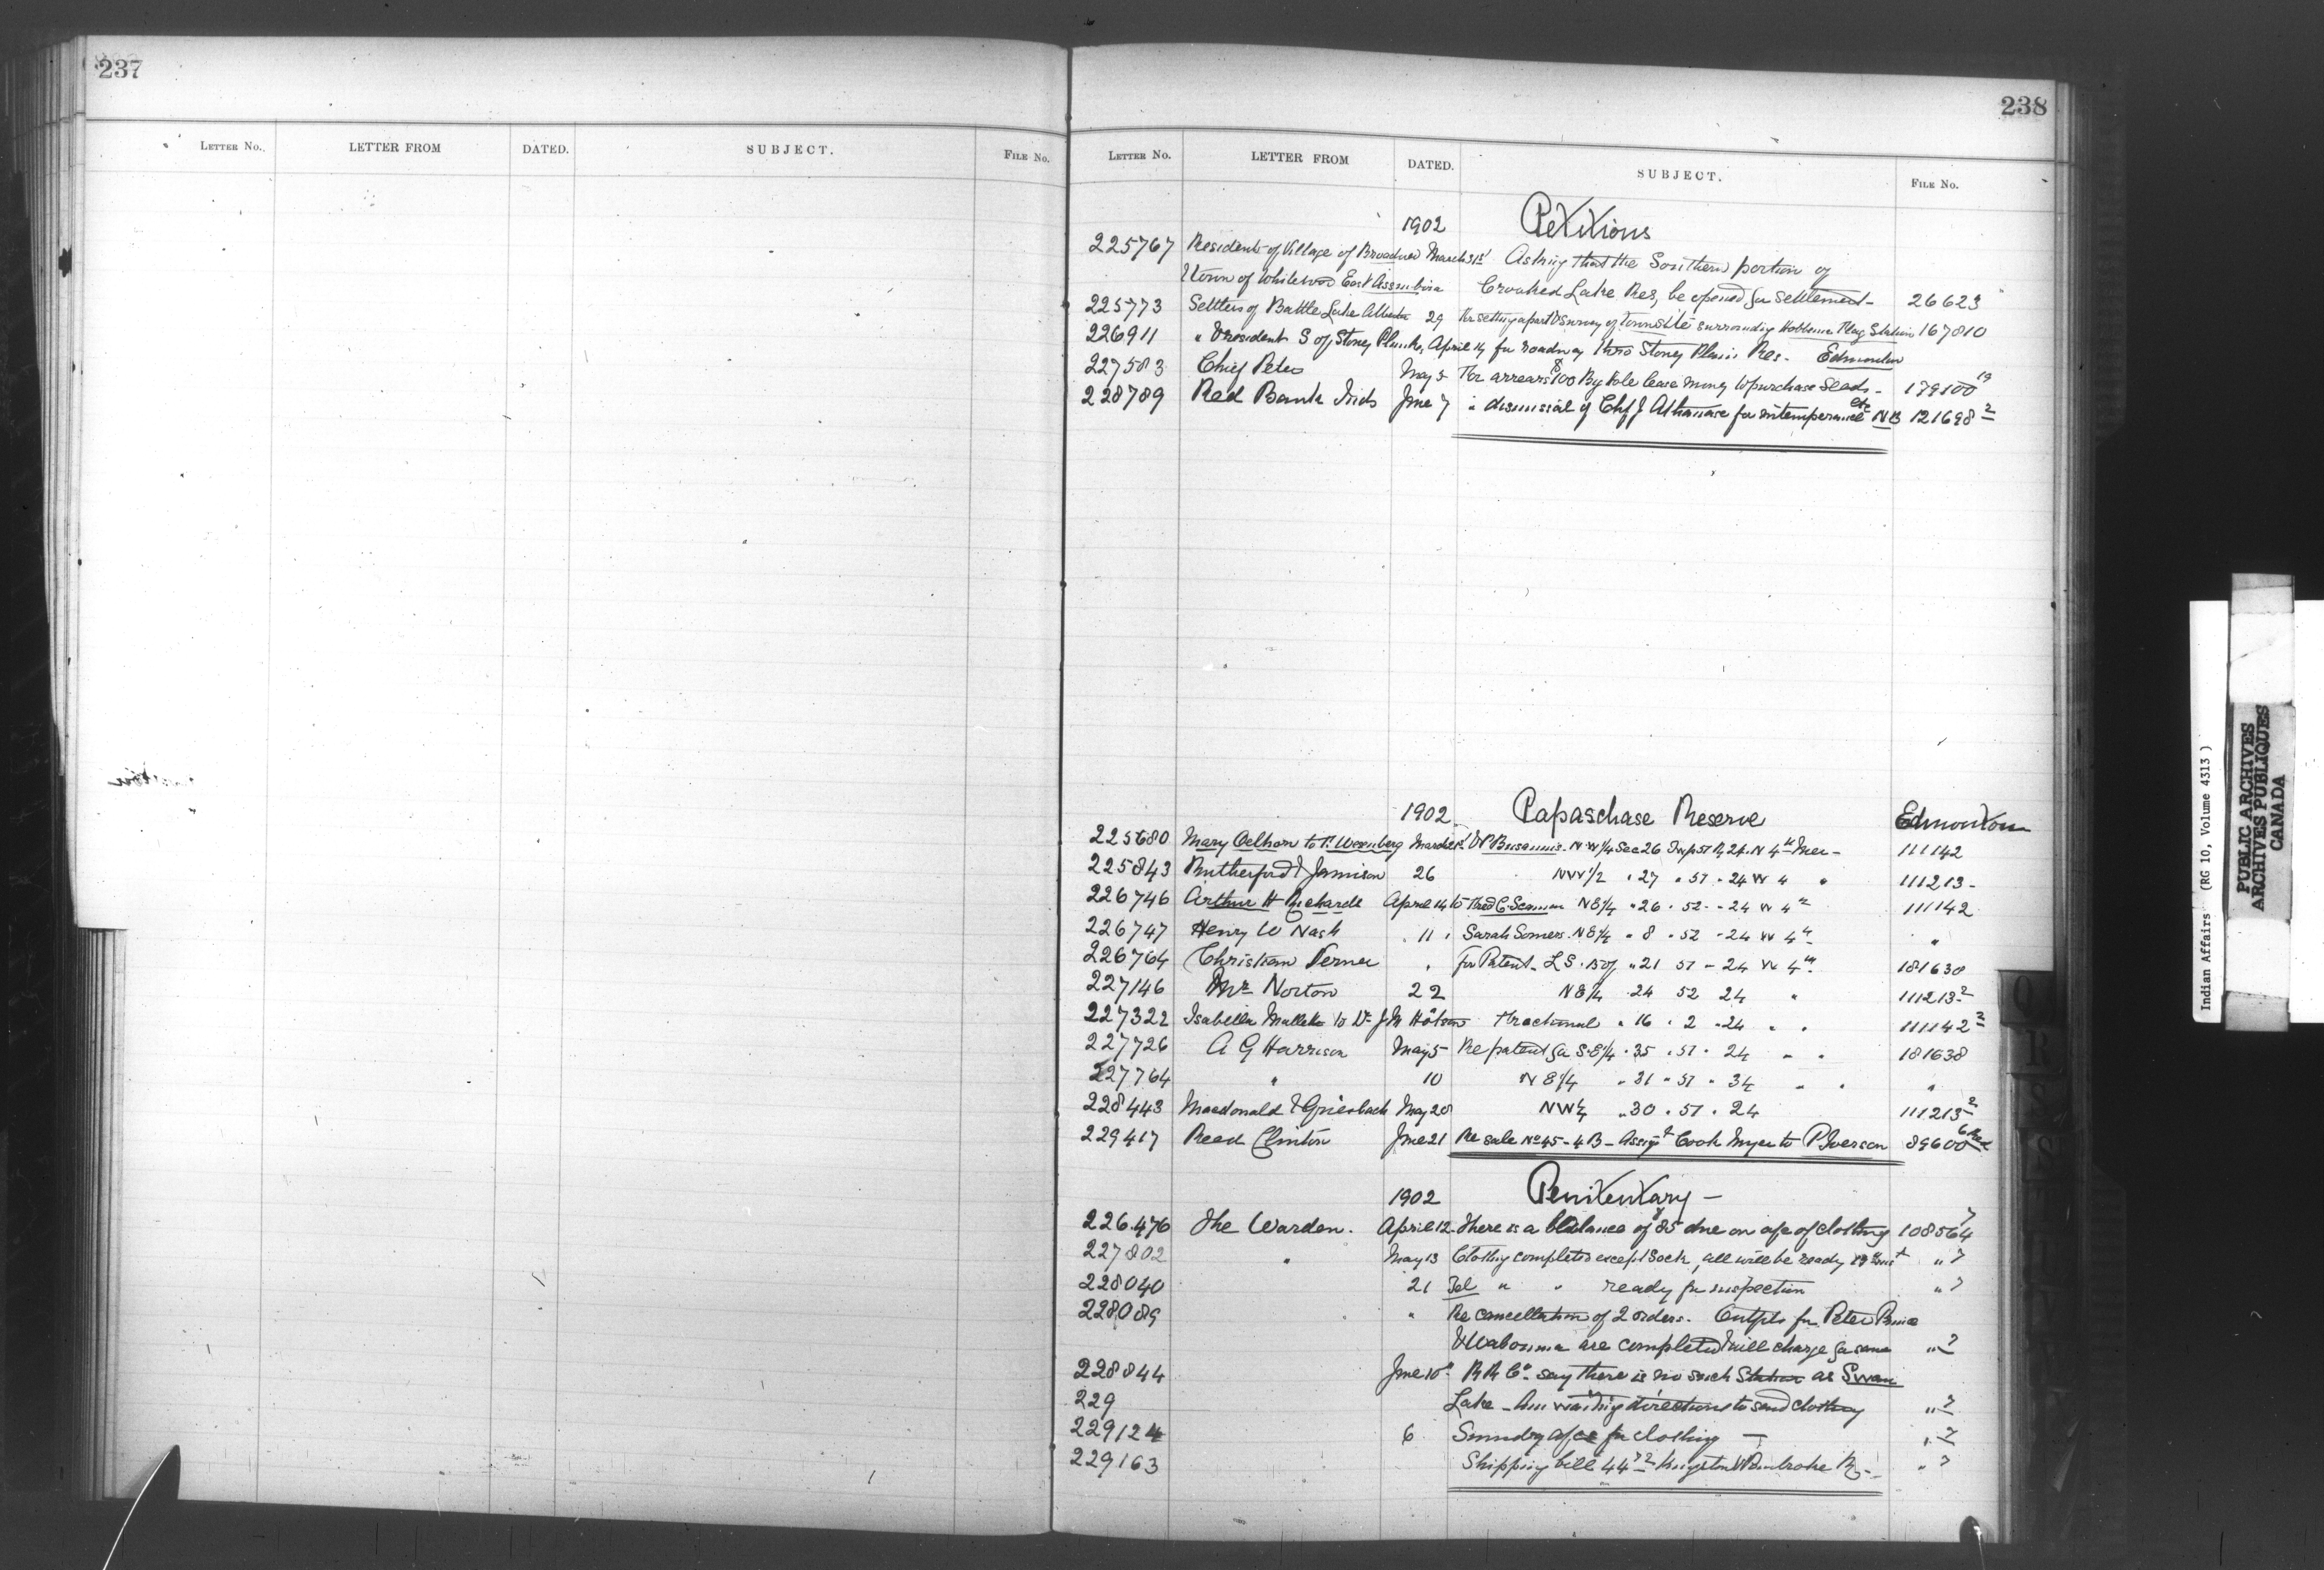 237
LETTER NO. LETTER FROM DATED. SUBJECT. FILE NO.
238
LETTER NO. LETTER FROM DATED. SUBJECT. FILE NO.
1902 Petitions
225767 Residents of Village of Broadview March 31st Asking that the Southern portion of
& town of Whitewood East Assiniboia Crooked Lake Res, be opened for settlement - 26623
225773 Settlers of Battle Lake Alberta 29 Re setting apart & survey of Townsite surrounding Hobbema Flag Station 167810
226911 " President S of Stoney April 14 for roadway thro Stoney Plain Res. Edmonton
227583 Chief Peter May 5 For arrears $100 By Pole lease money to purchase seeds - 179100 19
228789 Red Bank Inds June 7 " dismissal of Chf J Athanase for intemperance etc NB 121698 2
1902 Papaschase Reserve Edmonton
225680 Mary Oelhorn to P. March 21st N.W 1/4 Sec 26 Twp 51 R, 24. W 4th Mer - 111142
225843 Rutherford & Jamieson 26 NW 1/2 " 27 " 51 " 24 W 4 " 111213 -
226746 Arthur H April 14 to Fred C. N E 1/4 " 26 " 52 - " 24 W 4th 111142
226747 Henry W Nash " 11 " Sarah Somers. N E 1/4 " 8 " 52 " 24 W 4th "
226764 Christian Verner " for Patent - L S. 15 of " 21 51 " 24 W 4th 181638
227146 Mr Norton 22 N E 1/4 24 52 24 " 111213 2
227322 Isabella to Dr J M Fractional " 16 " 2 " 24 " " 111142 2
227726 A G Harrison May 5 Re patent for S.E 1/4 " 35 " 51 " 24 " " 181638
227764 " 10 N E 1/4 " 31 " 51 " 34 " " "
228443 Macdonald & Griesbach May 20 NW 1/4 " 30 " 51 " 24 111213 2
229417 Reed Clinton June 21 Re sale No 45 - 4 B - Assigt Cook Myer to P Iverson 89600
1902 Penitentary -
226476 The Warden. April 12. There is a balance of $85 due on a/c of clothing 108564 7
227802 " May 13 Clothing completed except socks, all will be ready inst " 7
228040 21 Tel " " ready for inspection " 7
228089 " Re cancellation of 2 orders. Outfits for Peter
& are completed & will charge for same " 7
228844 June 10th R R Co. say there is no such Station as Swan
229 Lake - Am waiting directions to send clothing " 7
229124 6 Sundry a/cs for clothing - " 7
229163 Shipping bill 44 72 Kingston & Pembroke Ry - " 7
Indian Affairs (RG 10, Volume 4313 )
PUBLIC ARCHIVES
ARCHIVES PUBLIQUES
CANADA
Q
R
S